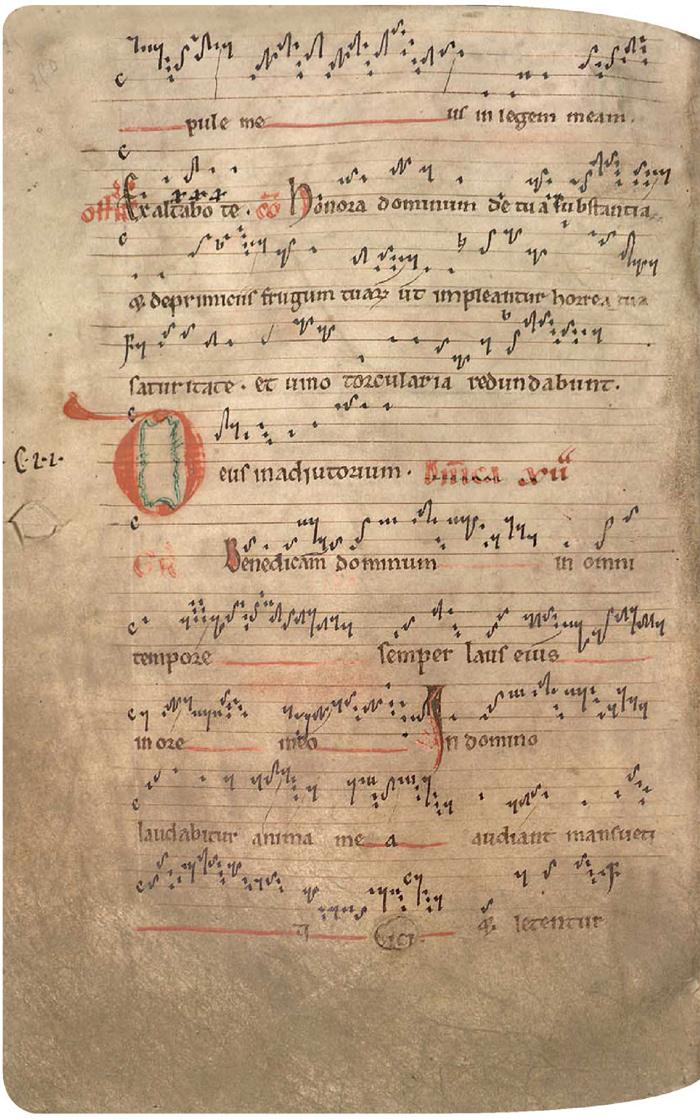 pule me us in legem meam.
Exaltabo te. Co Honora dominum de tua substantia
& deprimiciis frugum tuarum ut impleantur horrea tua
saturitate. et uino torcularia redundabunt.
C.2.2.
Deus inadiutorium. Dnica xii
GR Benedicam dominum in omni
tempore semper laus eius
in ore meo In domino
laudabitur anima mea audiant mansueti
& letentur